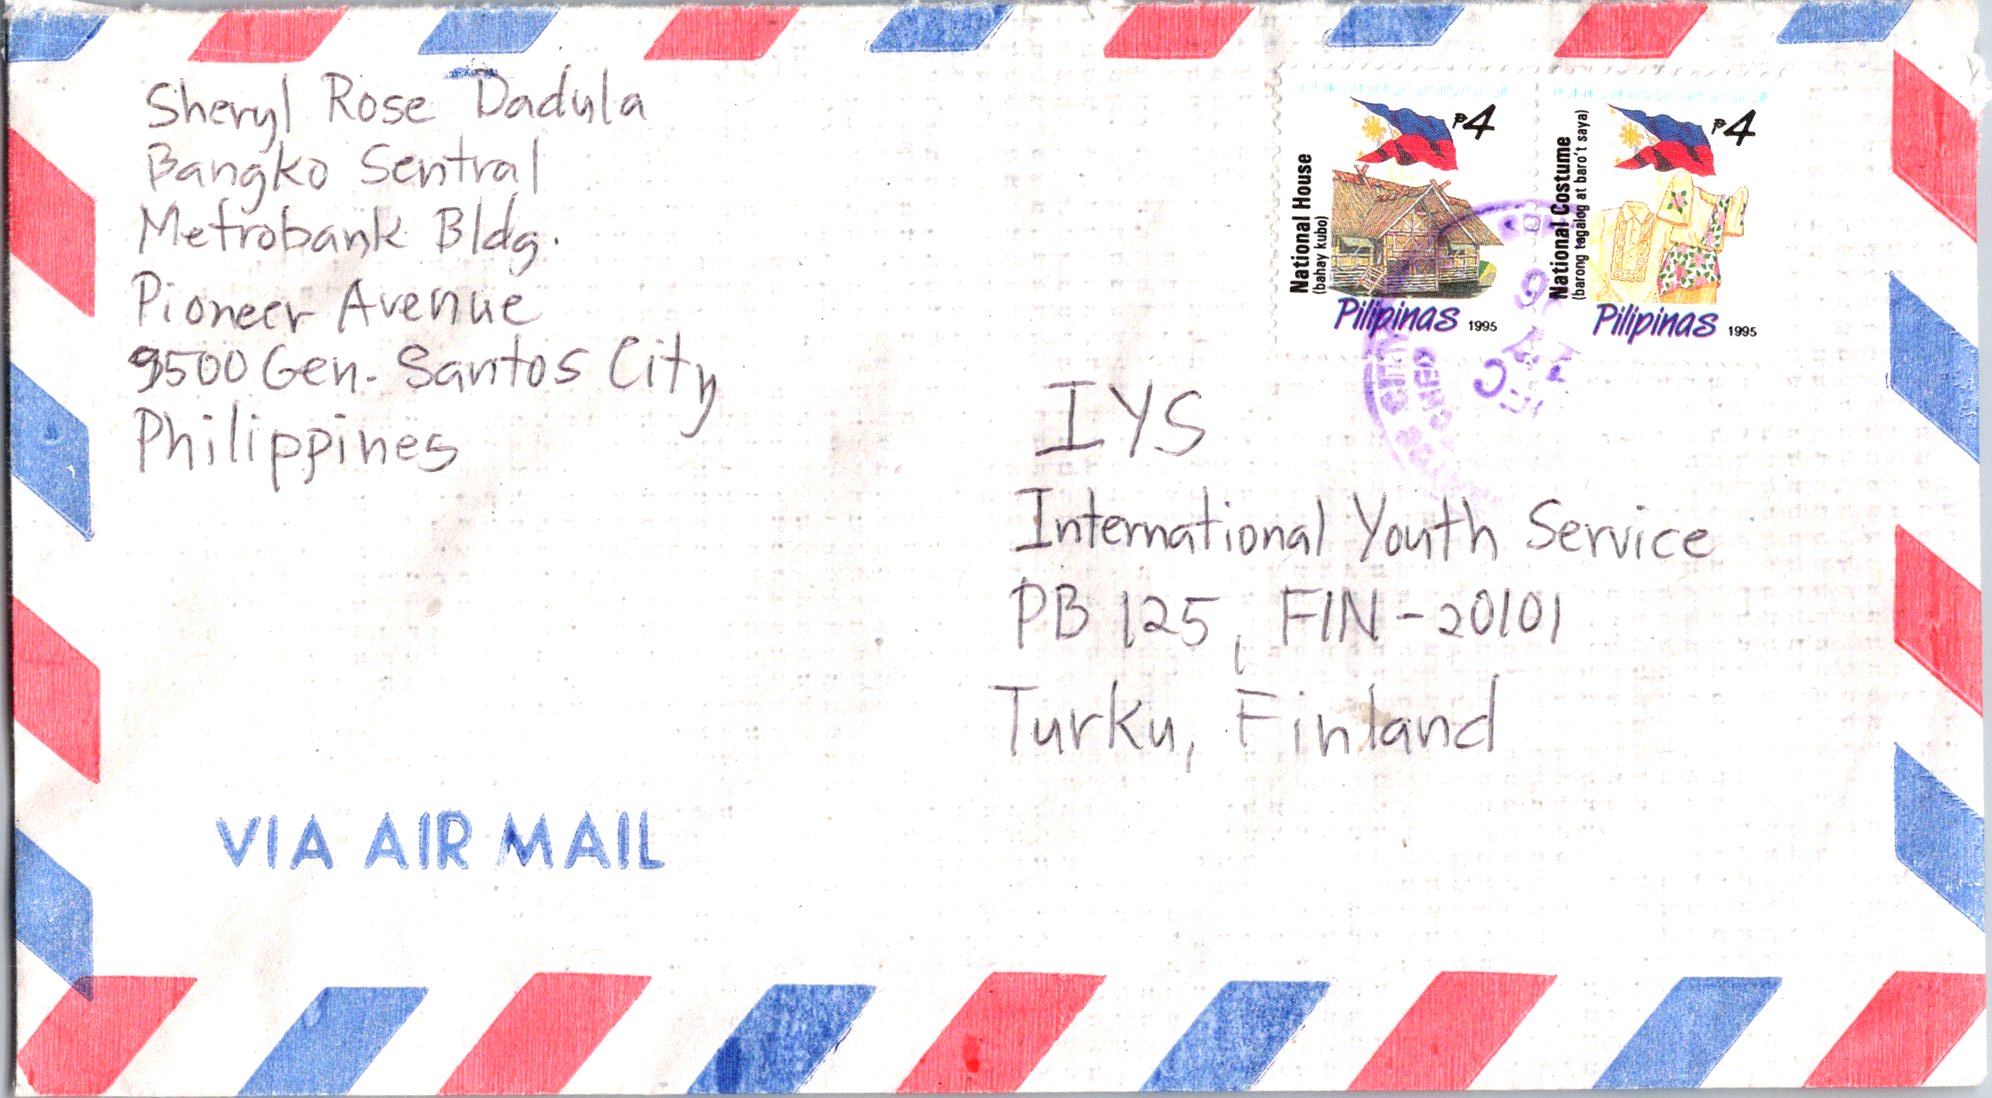 Sheryl Rose Dadula
Bangko Sentral
Metrobank Bldg.
Pioneer Avenue
9500 Gen. Santos City
Philippines
₱4
National House
(bahay kubo)
Pilipinas 1995
₱4
National Costume
(barong tagalog at baro't saya)
Pilipinas 1995
IYS
International Youth Service
PB 125, FIN-20101
Turku, Finland
VIA AIR MAIL